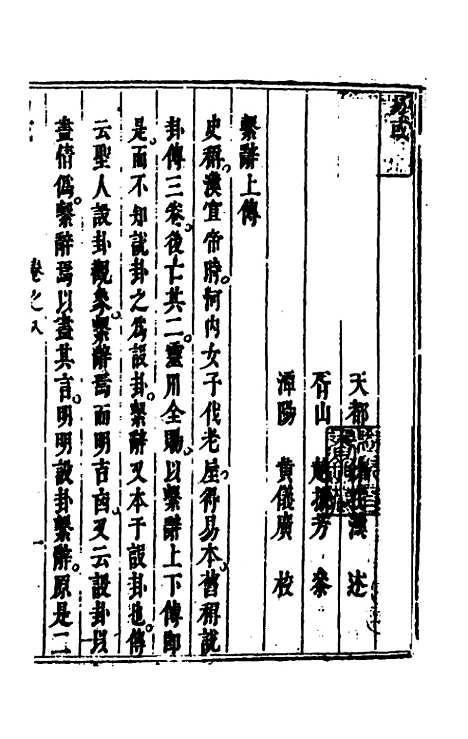 易或
天都 漢 述
胥山 趙振芳 叅
漳陽 黄儀廣 校
繫辭上傳
史稱漢宣帝時河内女子伐老屋得易本舊稱說
卦傳三卷後亡其二靈用全賜以繫辭上下傳即
是而不知說卦之為設卦繫辭又本于設卦也傳
云聖人設卦觀象繫辭焉而明吉凶又云設卦以
盡情偽繫辭焉以盡其言明明設卦繫辭原是二
卷之八 一